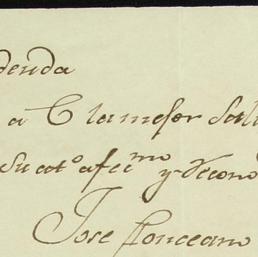 denda
a C la mejor Sal
Su at.º afec.mo y Recono
Jose Ponceano